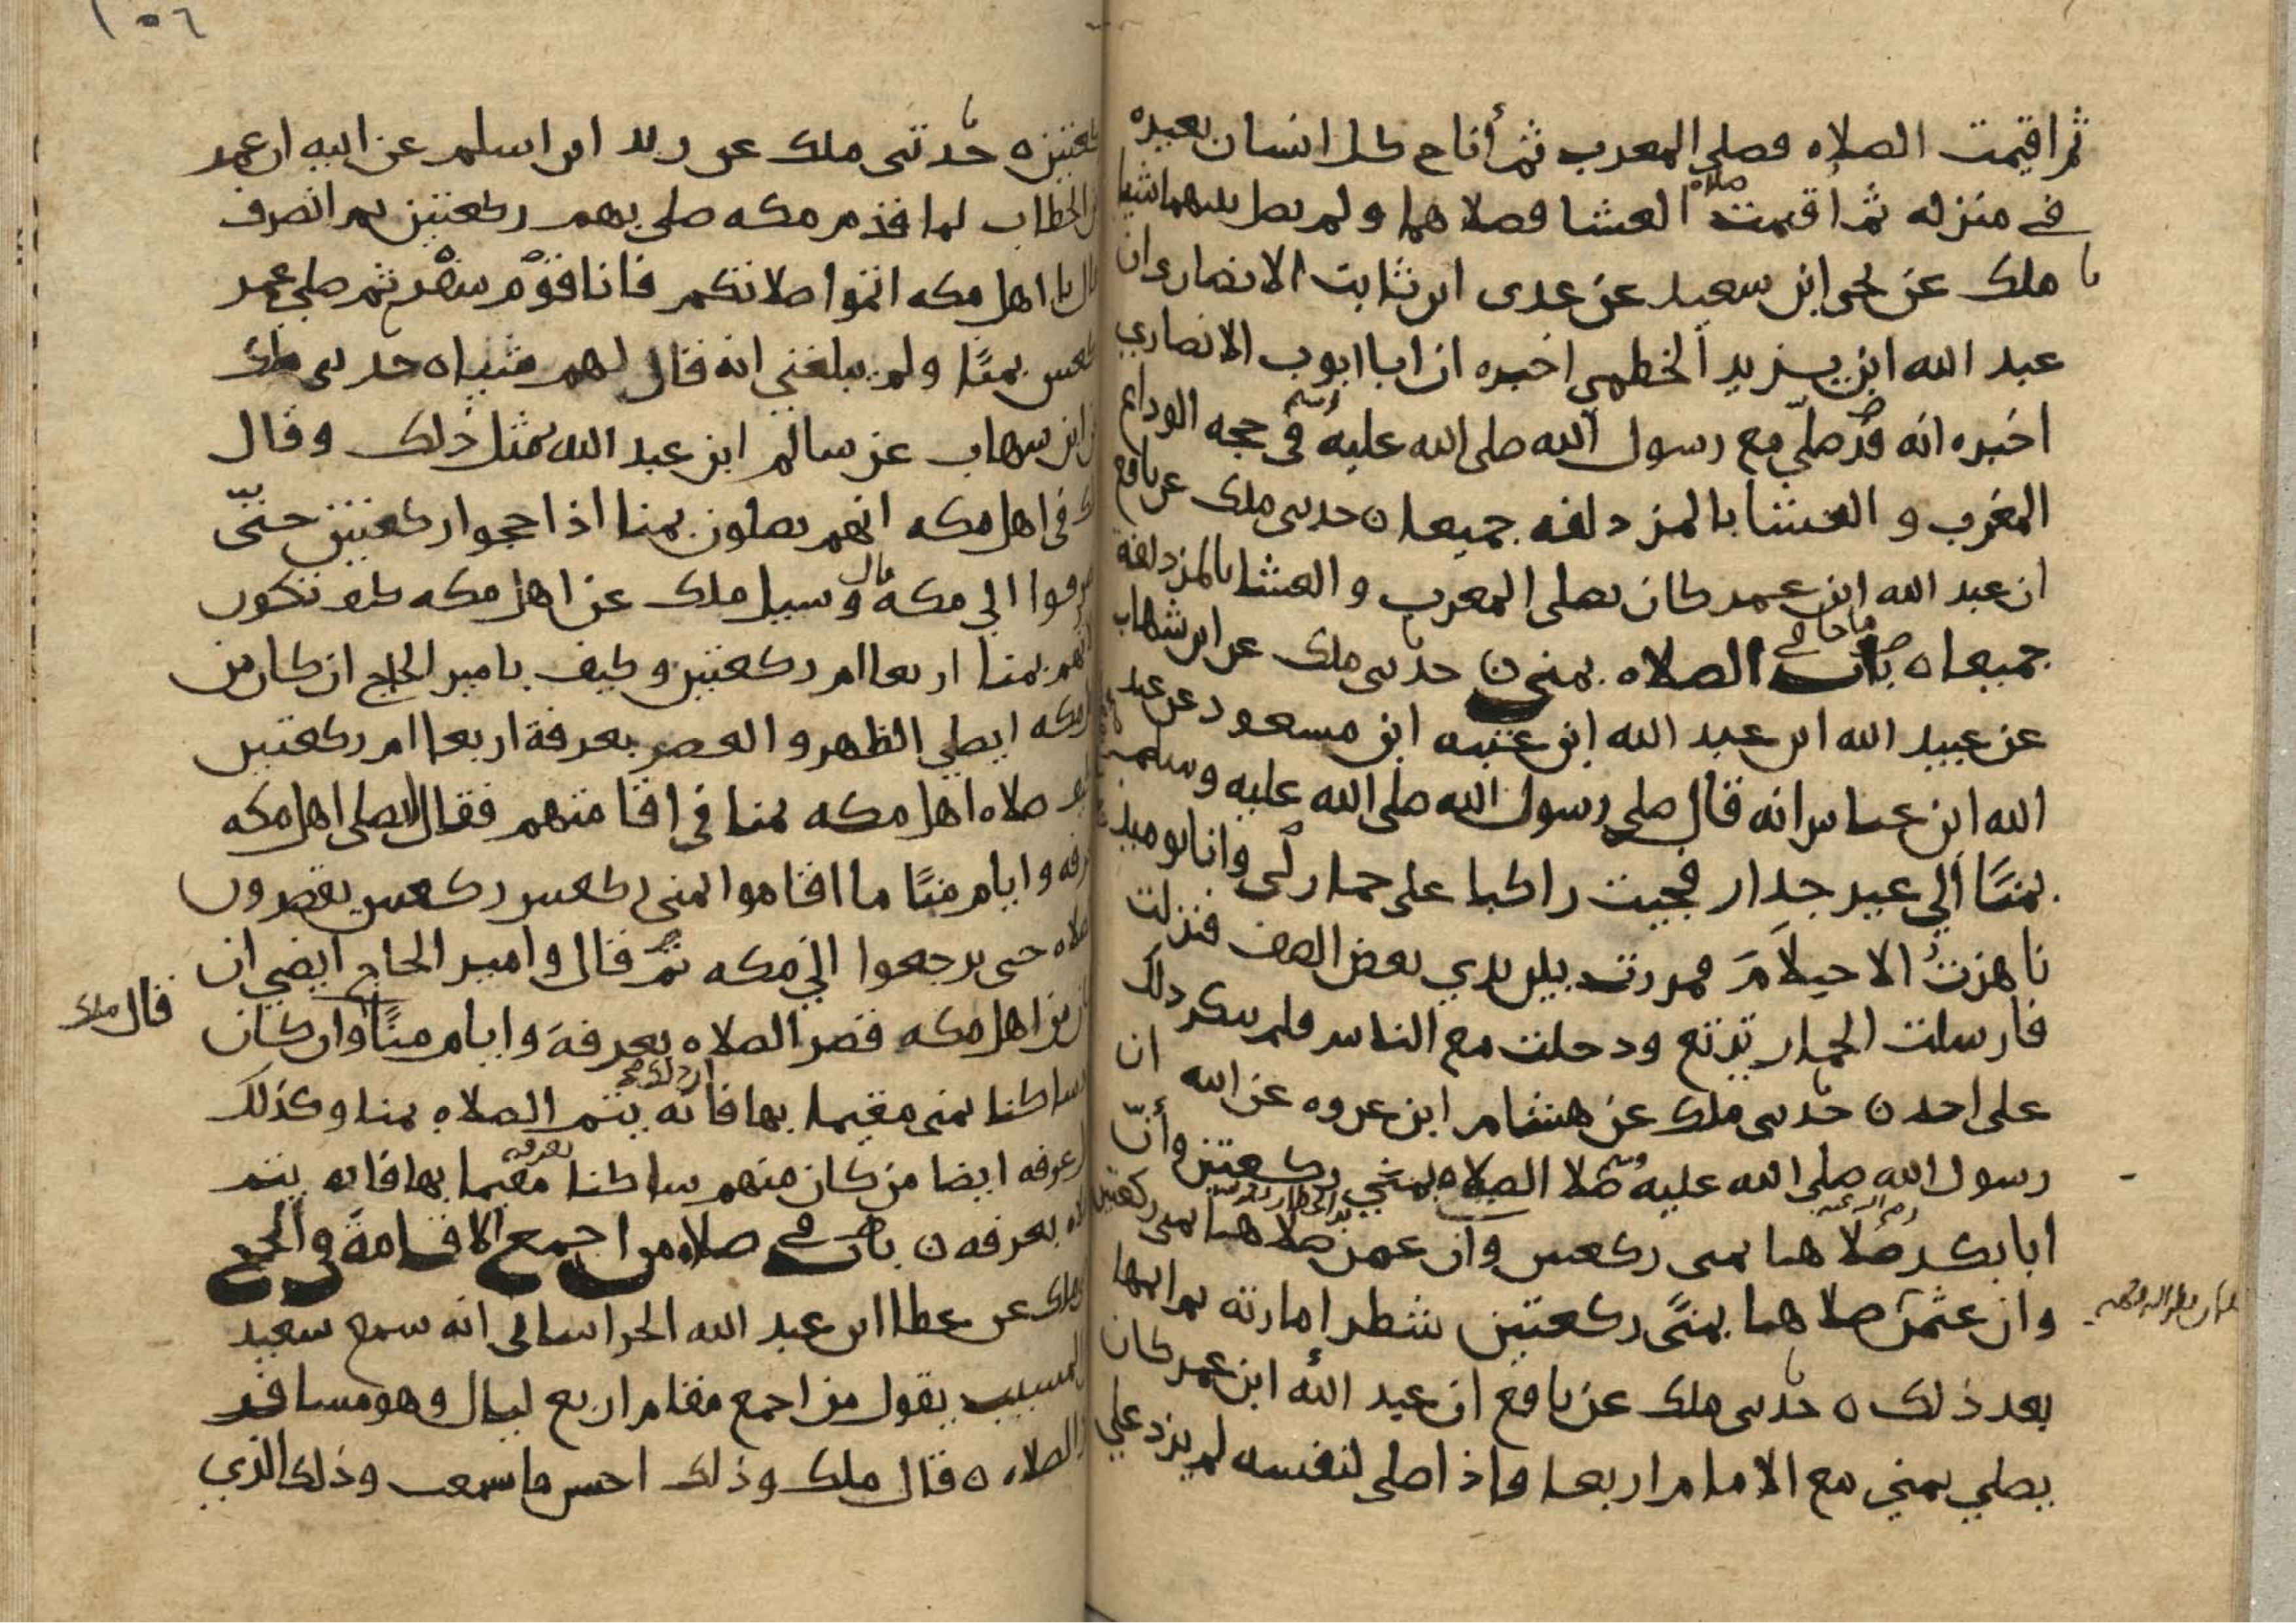 ثم اقيمت الصلاه فصلى المغرب ثم أناخ كل انسان بعيره
في منزله ثم أقيمت صلاه العشا فصلاهما ولم يصل بينهما شيا
ملك عن يحيى ابن سعيد عن عدى ابن ثابت الانصارى ان
عبد الله ابن يزيد الخطمي اخبره ان ابا ايوب الانصاري
اخبره انه قد صلى مع رسول الله صلى الله عليه وسلم في حجه الوداع
المغرب والعشا بالمزدلفه جميعا ٥ حدثنى ملك عن نافع
ان عبد الله ابن عمر كان يصلى المغرب والعشا بالمزدلفة
جميعا ٥ باب ما جا في الصلاه بمنى ٥ حدثنى ملك عن ابن شهاب
عن عبيد الله ابن عبد الله ابن عتبه ابن مسعود عن عبد
الله ابن عباس انه قال صلى رسول الله صلى الله عليه وسلم
بمنًا الي غير جدار فجيت راكبا على حمار لى وانا يوميذ
ناهزت الاحيلام فمررت بين يدي بعض الصف فنزلت
فارسلت الحمار ترتع ودخلت مع الناس فلم ينكر ذلك
على احد ٥ حدثنى ملك عن هشام ابن عروه عن ابيه ان
رسول الله صلى الله عليه وسلم صلا الصلاه بمنى ركعتين وأنّ
ابا بكر صلاها بمنى ركعتين وان عمر بن الخطاب صلاها بمنى ركعتين
وان عثمن صلاها بمنًى ركعتين شطر امارته ثم اتمها
بعد ذلك ٥ حدثنى ملك عن نافع ان عبد الله ابن عمر كان
يصلي بمنى مع الامام اربعا واذا صلى لنفسه لم يزد علي
١٥٦
ركعتين ٥ حدثنى ملك عن زيد ابن اسلم عن ابيه ان عمر
بن الخطاب لما قدم مكه صلى بهم ركعتين ثم انصرف
قال يا اهل مكه اتموا صلاتكم فانا قوم سفر ثم صلى عمر
ركعتين بمنًا ولم يبلغني انه قال لهم شيا ٥ حدثنى ملك
عن ابن شهاب عن سالم ابن عبد الله بمثل ذلك وقال
ملك في اهل مكه انهم يصلون بمنا اذا حجوا ركعتين حتّى
ينصرفوا الي مكه قال وسيل ملك عن اهل مكه كيف تكون
صلاتهم بمنا اربعا ام ركعتين وكيف بامير الحاج ان كان من
اهل مكه ايصلي الظهر والعصر بعرفة اربعا ام ركعتين
وكيف صلاه اهل مكه بمنا في اقامتهم فقال يصلى اهل مكه
بعرفه وايام منًا ما اقاموا بمنى ركعتين ركعتين يقصرون
الصلاه حتى يرجعوا الي مكه ثم قال وامير الحاج ايضي ان
كان من اهل مكه قصر الصلاه بعرفة وايام منًا وان كان
قال ملك
ساكنا بمنى مقيما بها فان ذلك يتم الصلاه بمنا وكذلك
اهل عرفه ايضا من كان منهم ساكنا بعرفه مقيما بها فانه يتم
الصلاه بعرفه ٥ باب في صلاه من اجمع الاقامة في الحج
ملك عن عطا ابن عبد الله الخراسانى انه سمع سعيد
بن المسيب يقول من اجمع مقام اربع ليال وهو مسافر
اتم الصلاه ٥ قال ملك وذلك احسن ما سمعت وذلك الذي